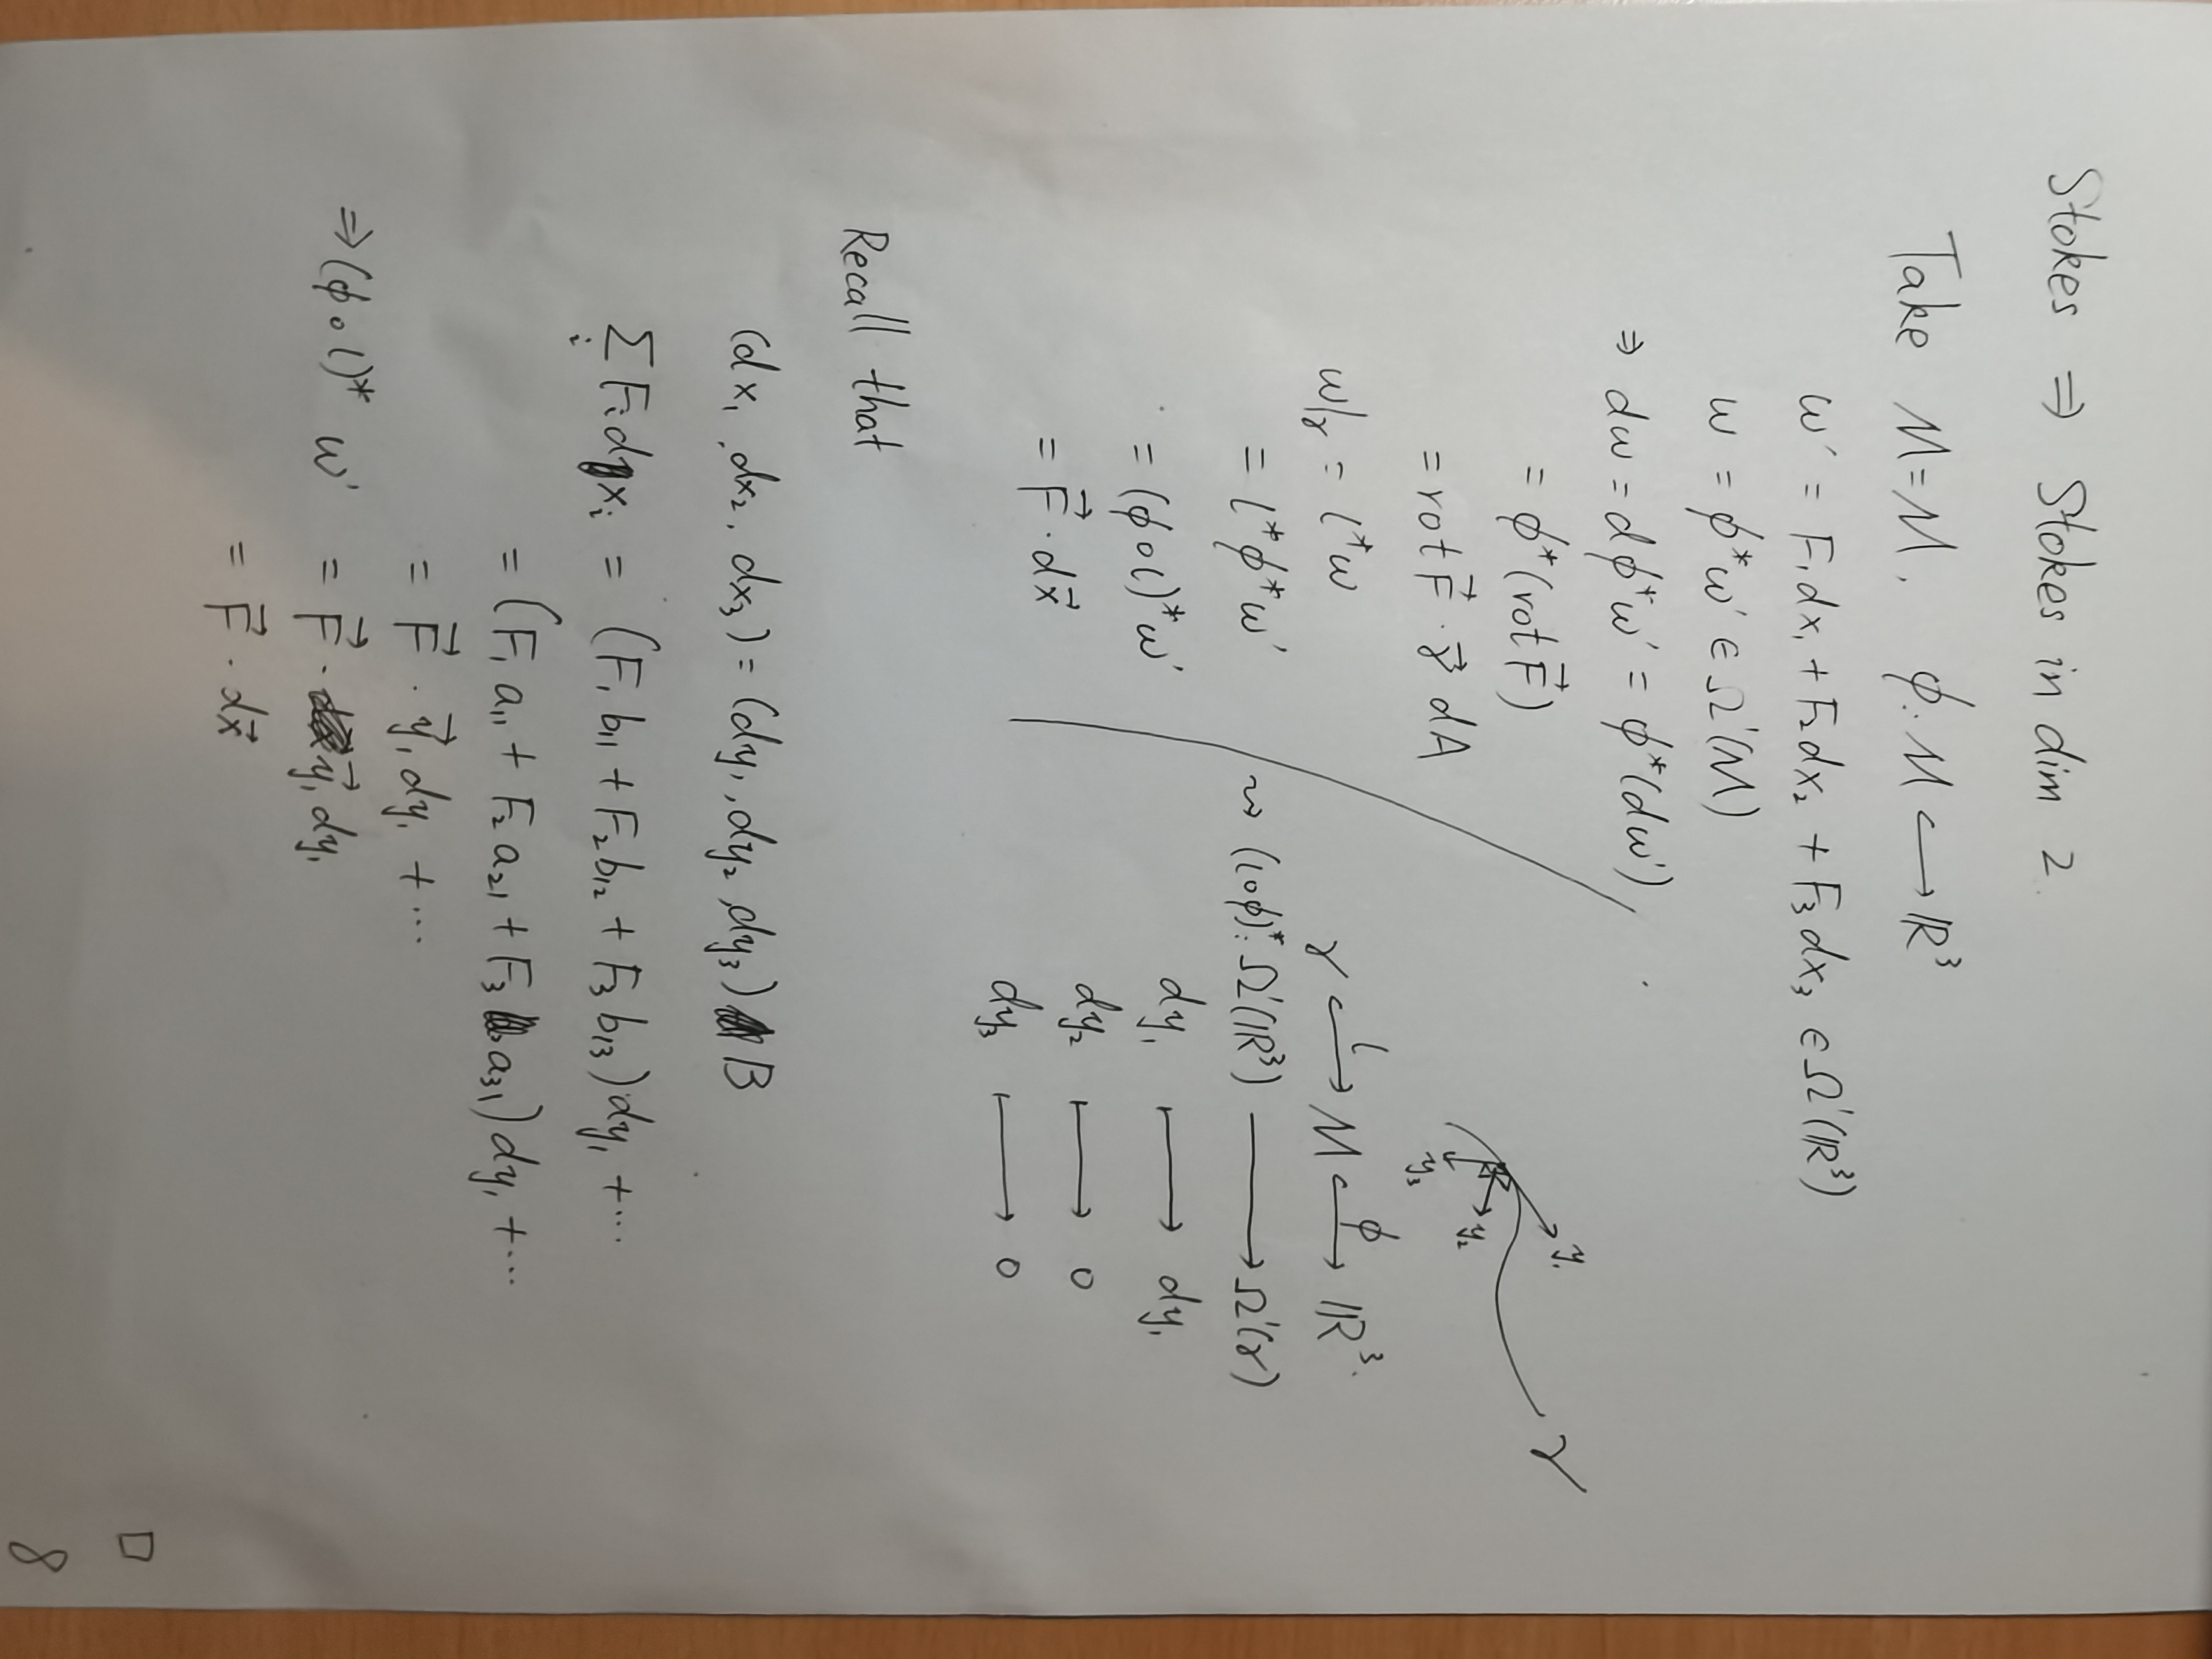 Stokes ⇒ Stokes in dim 2.
Take M=M, ϕ: M ↪ ℝ³
ω' = F₁dx₁ + F₂dx₂ + F₃dx₃ ∈ Ω¹(ℝ³)
ω = ϕ*ω' ∈ Ω¹(M)
⇒ dω = dϕ*ω' = ϕ*(dω')
= ϕ*(rot F⃗)
= rot F⃗ · γ⃗ dA
ω|γ = ι*ω
= ι*ϕ*ω'
= (ϕ∘ι)*ω'
= F⃗ · dx⃗
y₁
γ
y₂
y₃
γ ↪ι M ↪ϕ ℝ³.
⇝ (ι∘ϕ)*: Ω¹(ℝ³) ⟶ Ω¹(γ)
dy₁ ⟼ dy₁
dy₂ ⟼ 0
dy₃ ⟼ 0
Recall that
(dx₁, dx₂, dx₃) = (dy₁, dy₂, dy₃) B
∑ᵢ Fᵢ dxᵢ = (F₁b₁₁ + F₂b₁₂ + F₃b₁₃)dy₁ + ⋯
= (F₁a₁₁ + F₂a₂₁ + F₃a₃₁)dy₁ + ⋯
= F⃗ · y⃗₁ dy₁ + ⋯
⇒ (ϕ∘ι)* ω' = F⃗ · y⃗₁ dy₁
= F⃗ · dx⃗
□
8